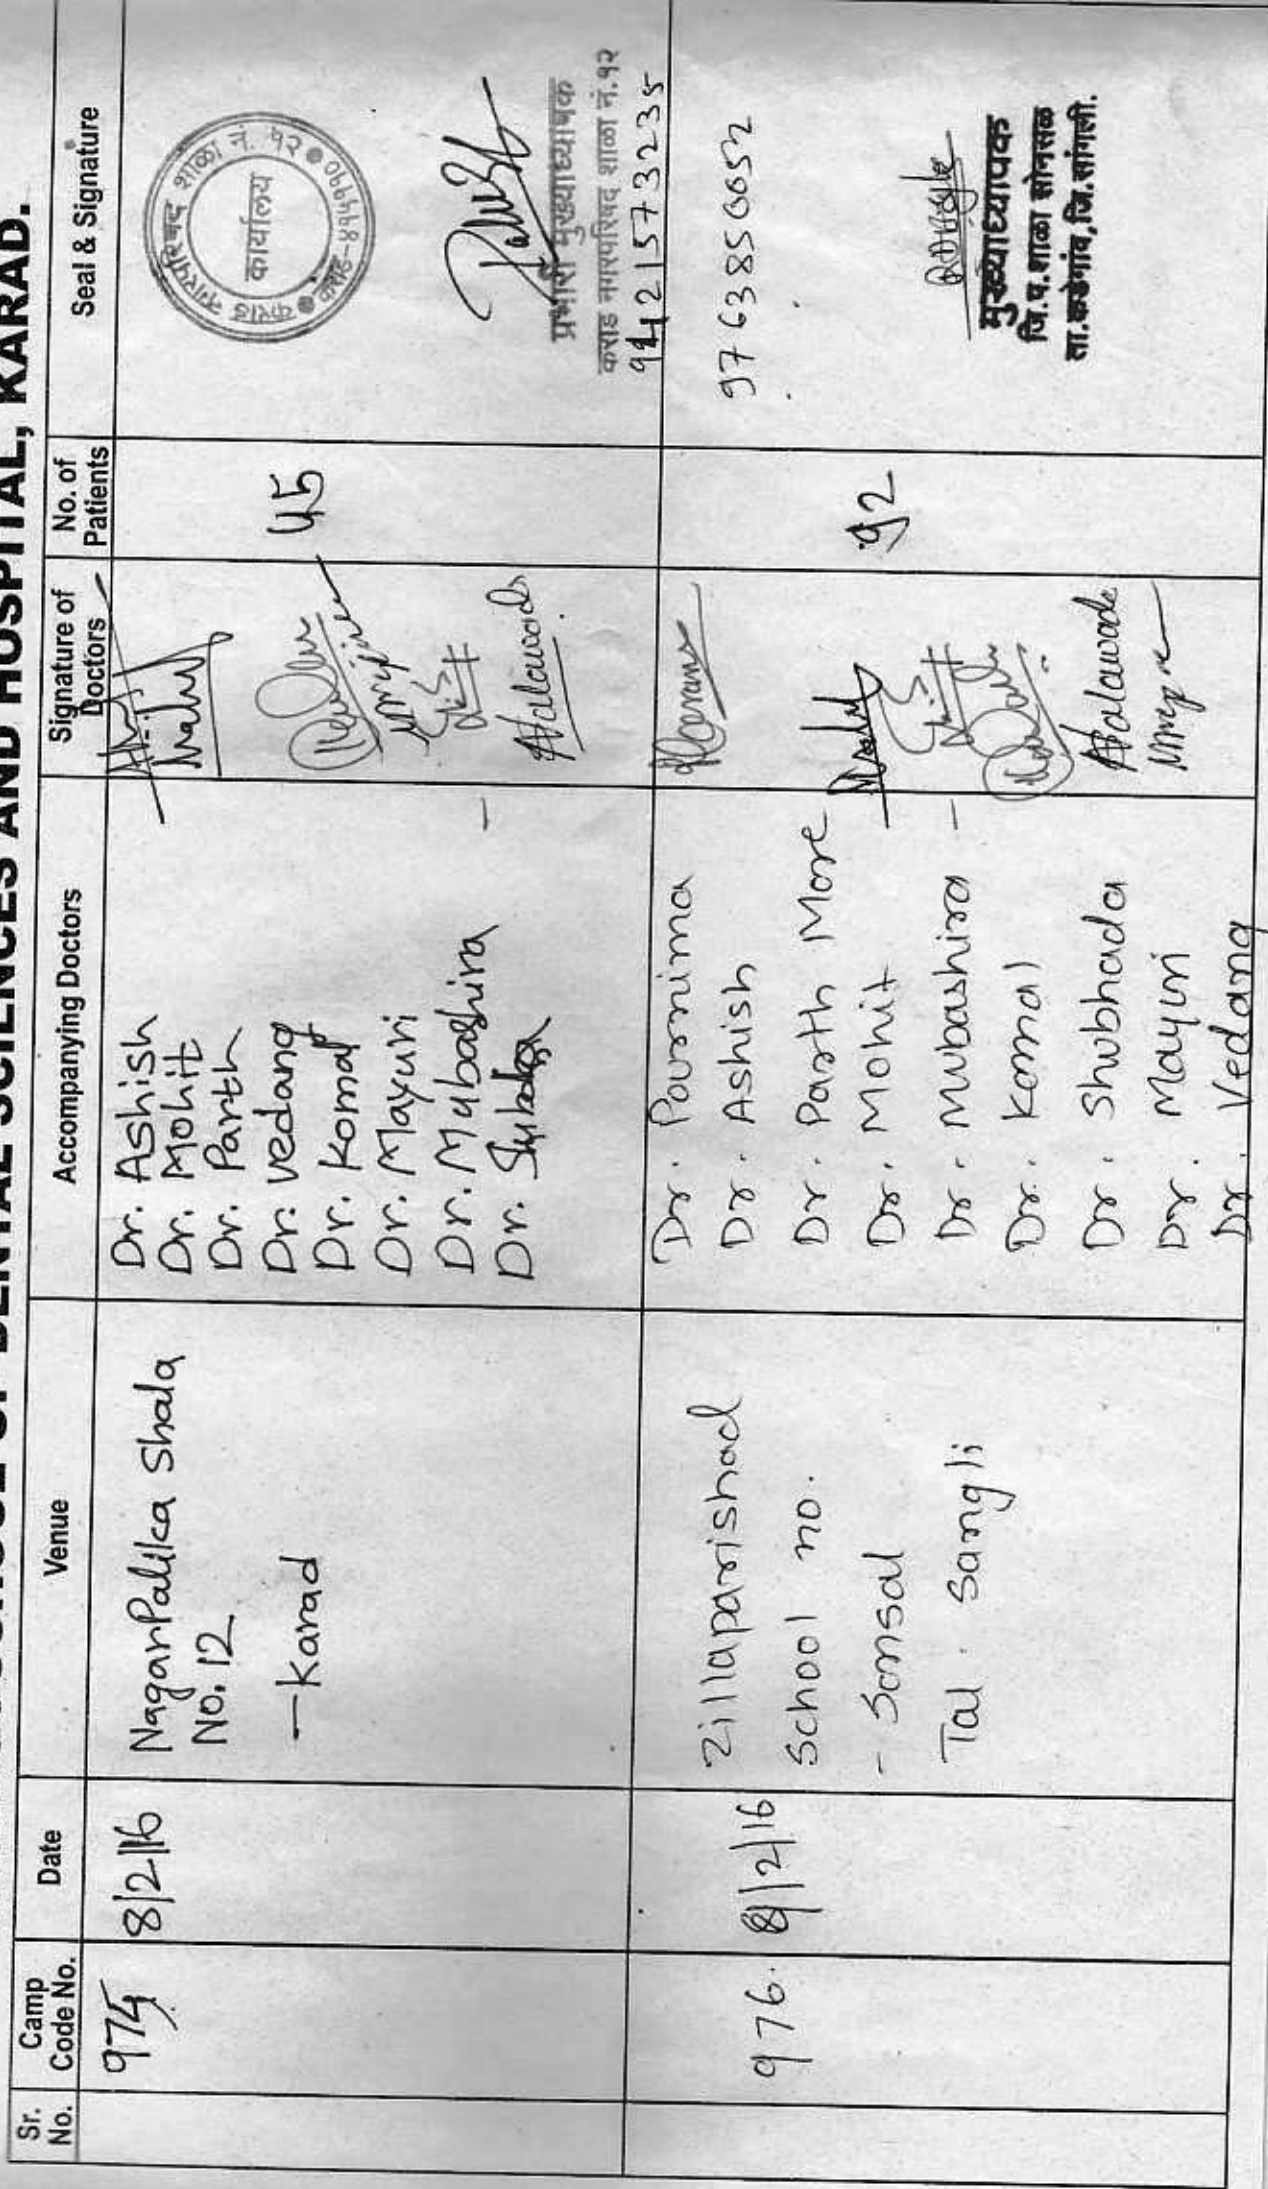 SCHOOL OF DENTAL SCIENCES AND HOSPITAL, KARAD.
Sr. No.
Camp Code No.
Date
Venue
Accompanying Doctors
Signature of Doctors
No. of Patients
Seal & Signature
975
8/2/16
NagarPalika Shala
No. 12
- Karad
Dr. Ashish
Dr. Mohit
Dr. Parth
Dr. Vedang
Dr. Komal
Dr. Mayuri
Dr. Mubashira
Dr.
45
कराड नगरपरिषद शाळा नं. १२
कार्यालय
कराड-४१५११०
प्रभारी मुख्याध्यापक
कराड नगरपरिषद शाळा नं.१२
9421573235
976.
8/2/16
Zillaparishad
School no.
- Sonsal
Tal. Sangli
Dr. Pournima
Dr. Ashish
Dr. Parth More
Dr. Mohit
Dr. Mubashira -
Dr. Komal
Dr. Shubhada
Dr. Mayuri
Dr. Vedang
92
9763850052
मुख्याध्यापक
जि.प.शाळा सोनसळ
ता.कडेगांव,जि.सांगली.